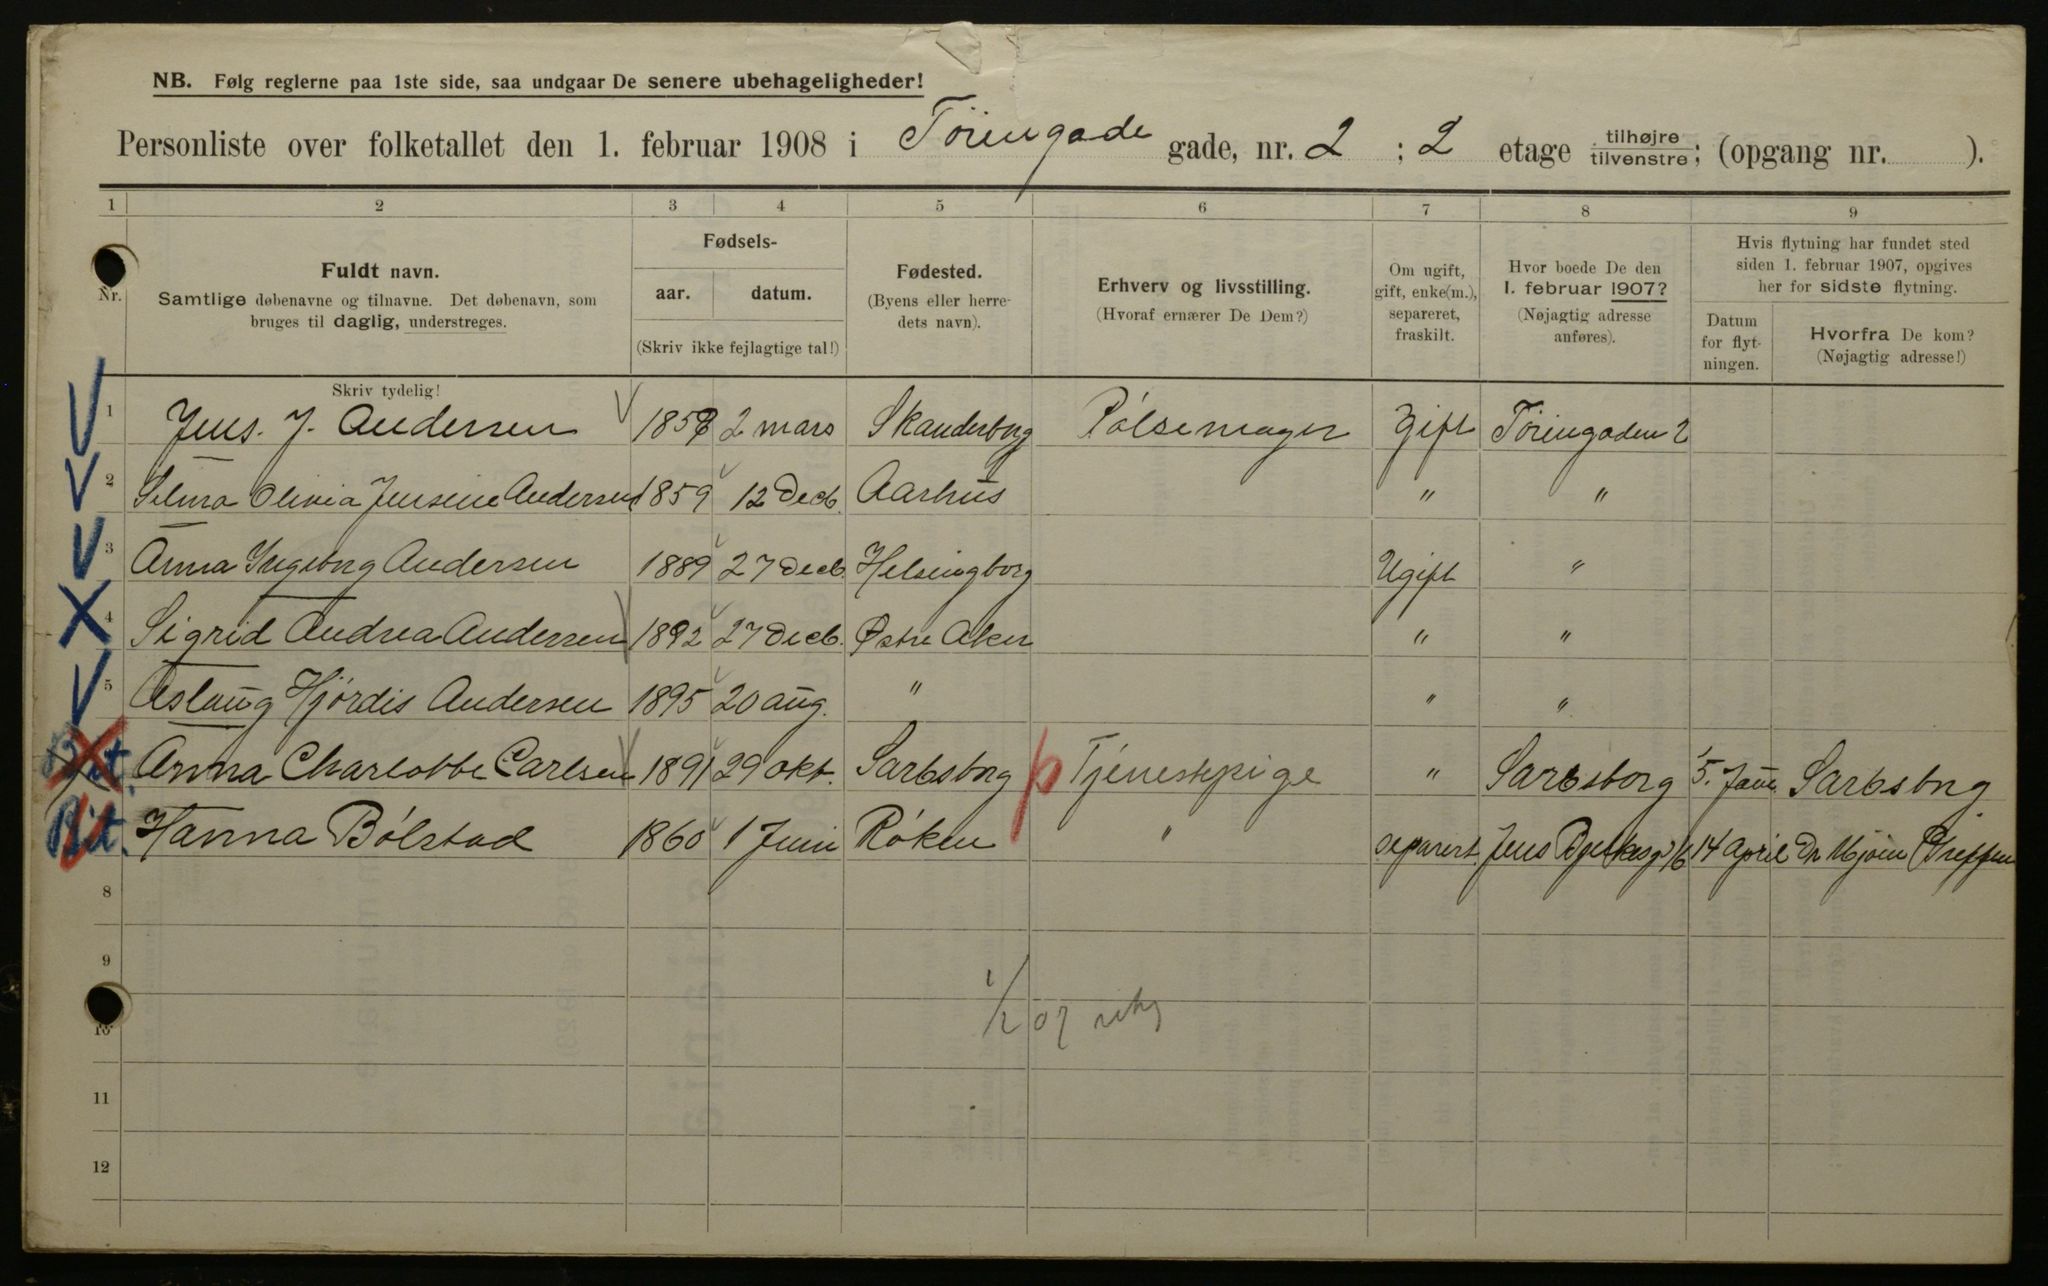 NB. Følg reglerne paa 1ste side, saa undgaar De senere ubehageligheder!
Personliste over folketallet den 1. februar 1908 i Töiengade gade, nr. 2 ; 2 etage tilhøjre/tilvenstre; (opgang nr. ).
1 2 3 4 5 6 7 8 9
Nr.
Fuldt navn.
Samtlige døbenavne og tilnavne. Det døbenavn, som
bruges til daglig, understreges.
Skriv tydelig!
Fødsels-
aar. datum.
(Skriv ikke fejlagtige tal!)
Fødested.
(Byens eller herre-
dets navn).
Erhverv og livsstilling.
(Hvoraf ernærer De Dem?)
Om ugift,
gift, enke(m.),
separeret,
fraskilt.
Hvor boede De den
1. februar 1907?
(Nøjagtig adresse
anføres).
Hvis flytning har fundet sted
siden 1. februar 1907, opgives
her for sidste flytning.
Datum
for flyt-
ningen.
Hvorfra De kom?
(Nøjagtig adresse!)
1 Jens. J. Andersen 1858 2 mars Skanderborg Pölsemager Gift Töiengaden 2
2 Selma Olivia Jensine Andersen 1859 12 Decb. Aarhus " "
3 Anna Ingeborg Andersen 1889 27 Decb. Helsingborg Ugift "
4 Sigrid Andrea Andersen 1892 27 Decb. Østre Aker " "
5 Aslaug Hjördis Andersen 1895 20 aug. " " "
Bit. Anna Charlotte Carlsen 1891 29 okt. Sarbsborg p Tjenestepige " Sarbsborg 5. Jan. Sarbsborg
Bit. Hanna Bölstad 1860 1 Juni Röken " separert. Jens Bjelkesg 16 14 April Dr Mjöen
8
9
10 1/2 07
11
12